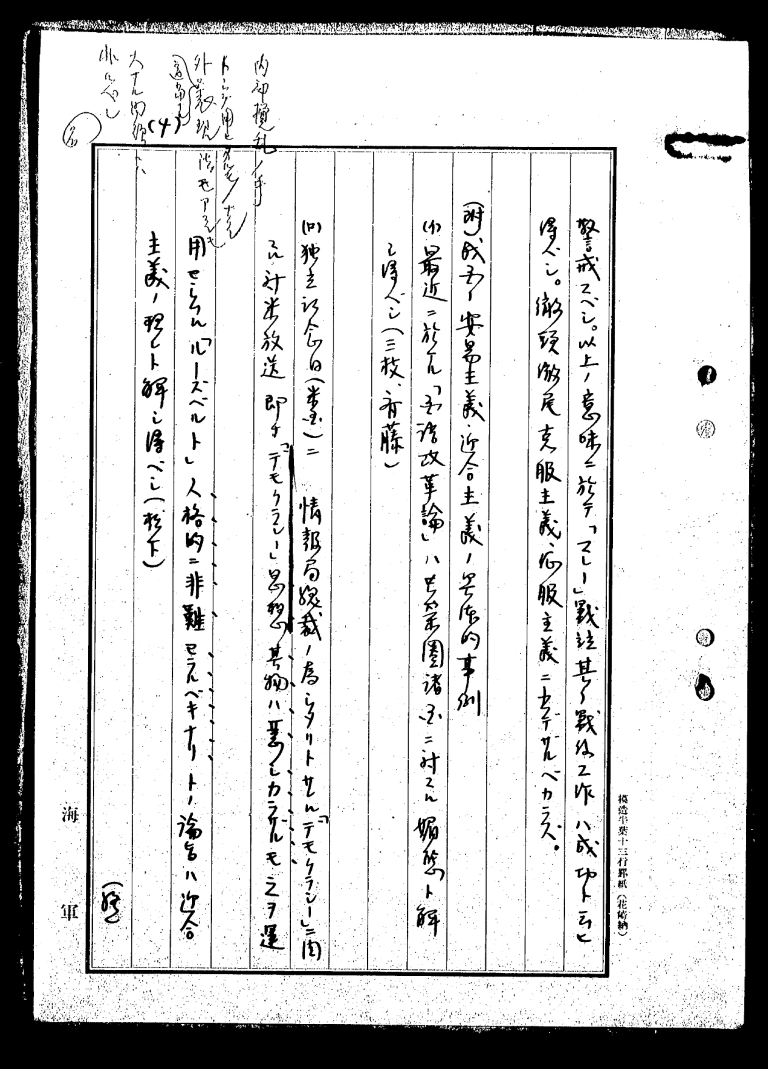 警戒スベシ。以上ノ意味ニ於テ「マレー」戦後其ノ戦後工作ハ成功ト云ヒ
得ベシ。徹頭徹尾克服主義、征服主義ニ出デザルベカラズ。
(附)我国ノ安易主義、迎合主義ノ具体的事例
(イ)最近ニ於ケル「国語改革論」ハ共栄圏諸国ニ対スル媚態ト解
シ得ベシ(三枝、斉藤)
(ロ)独立記念日(米国)ニ 情報局総裁ノ為シタリトサルル「デモクラシー」ニ関
スル対米放送 即チ「デモクラシー」思想其物ハ悪シカラザルモ之ヲ運
用セシ「ルーズベルト」人格的ニ非難セラルベキナリトノ論旨ハ迎合
主義ノ現レト解シ得ベシ(松下)
(終)
内部攪乱ノ手
外 表現
(4)
海軍
模造半葉十三行罫紙(花崎納)